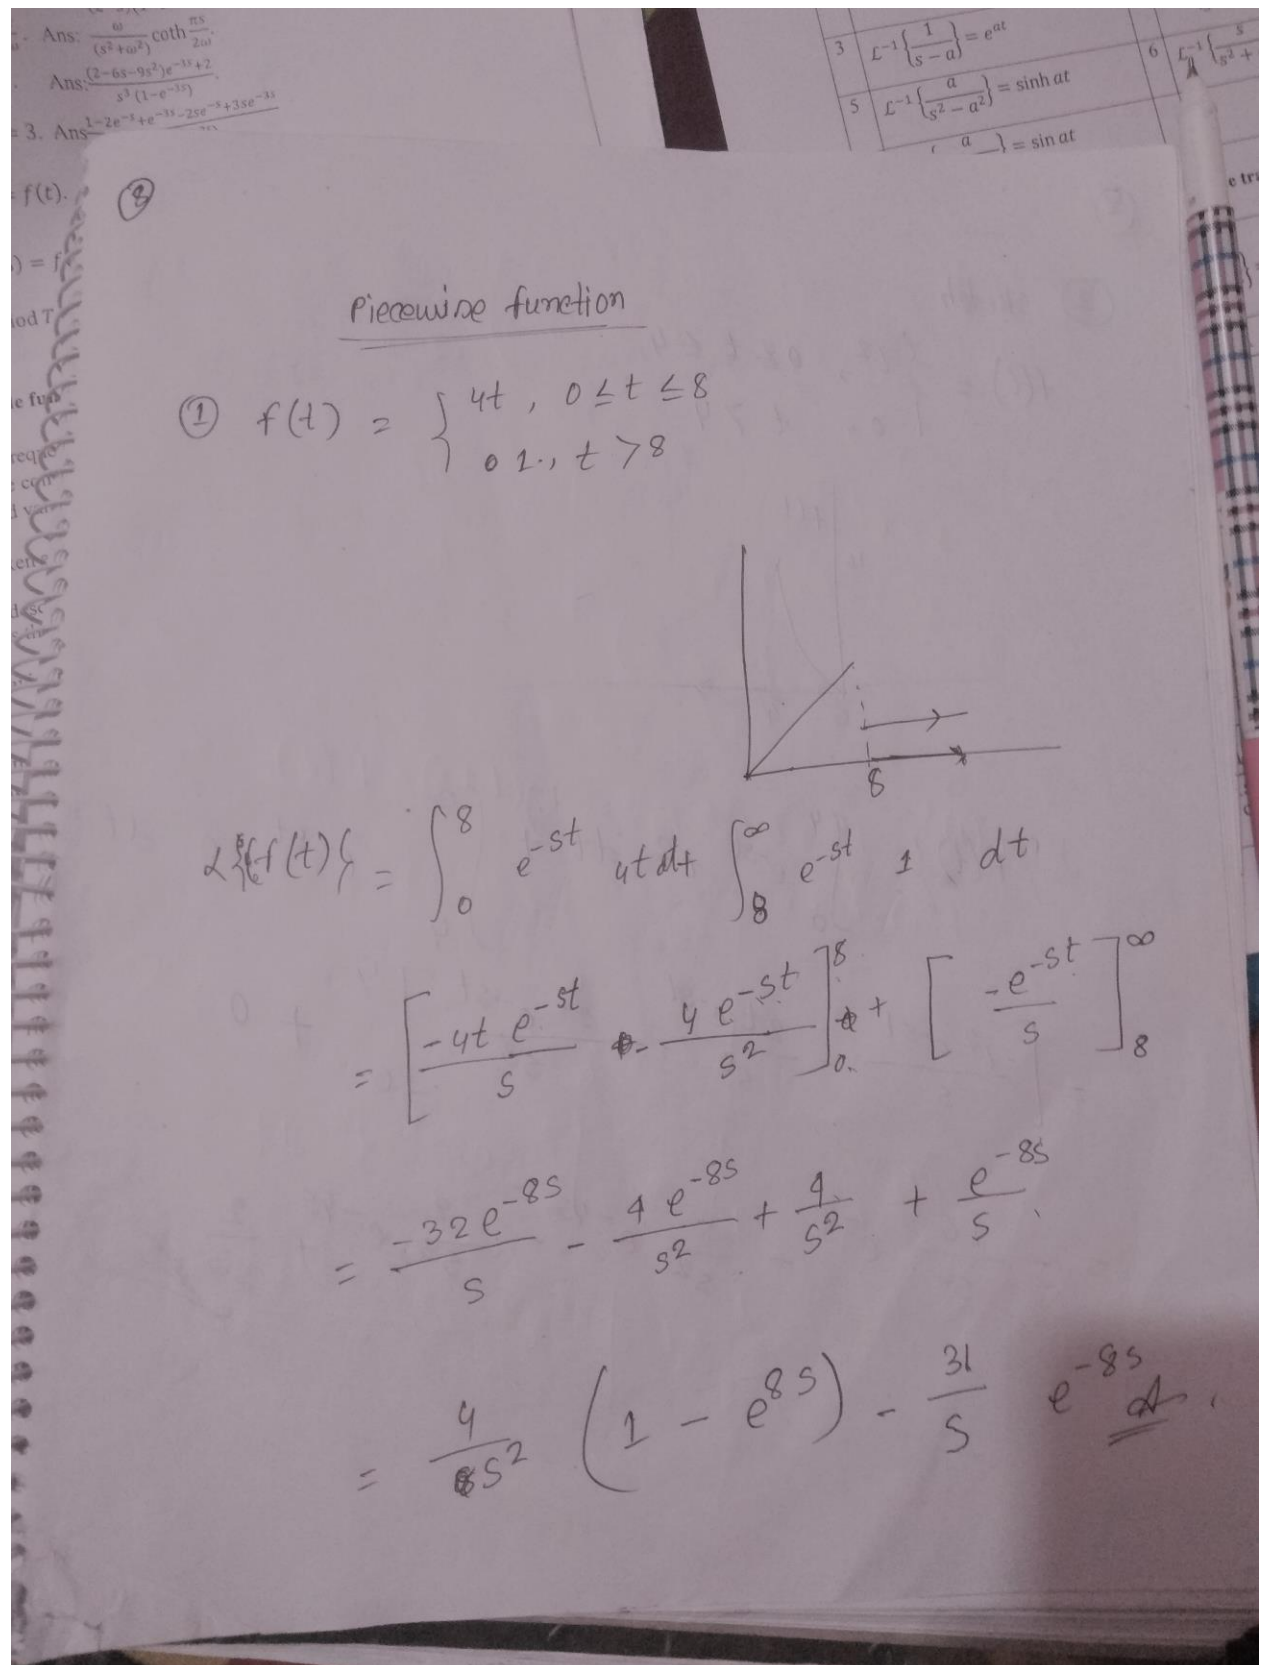 Ans: ω/(s²+ω²) coth πs/2ω.
Ans: (2−6s−9s²)e^−3s+2 / s³(1−e^−3s)
= 3. Ans 1−2e^−s+e^−3s−2se^−s+3se^−3s
f(t).
3 L⁻¹{1/(s−a)} = e^at
6
5 L⁻¹{a/(s²−a²)} = sinh at
a } = sin at
⑧
Piecewise function
① f(t) = { 4t, 0≤t≤8
0 1., t>8
8
L{f(t)} = ∫₀⁸ e^-st 4t dt ∫₈^∞ e^-st 1 dt
= [-4t e^-st/s - 4e^-st/s²]₀⁸ + [-e^-st/s]₈^∞
= -32e^-8s/s - 4e^-8s/s² + 4/s² + e^-8s/s
= 4/s² (1 - e^8s) - 31/s e^-8s